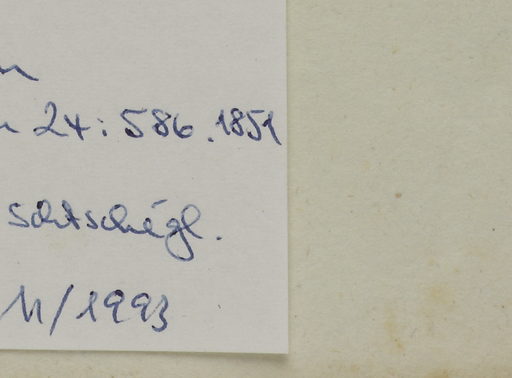 24: 586. 1851
Schtschégl.
11/1993